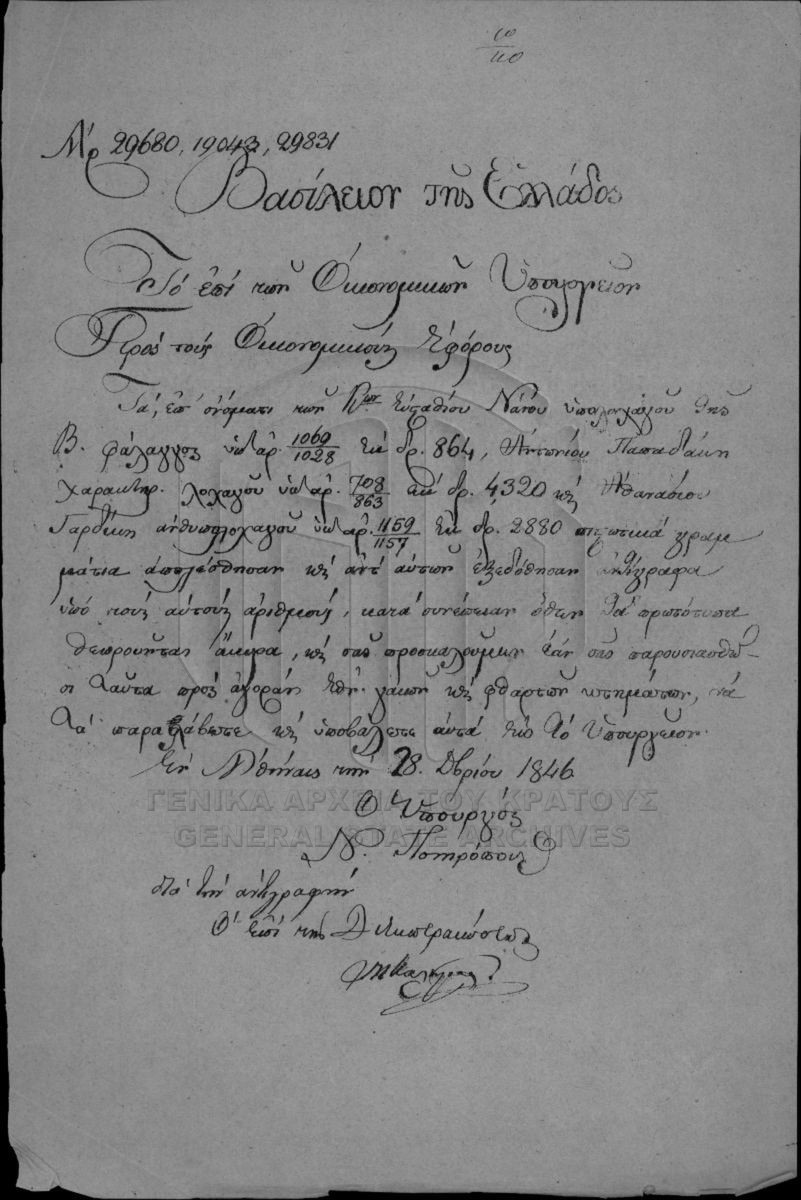 10
110
Ἀρ 29680, 19043, 29831
Βασίλειον τῆς Ἑλλάδος
Τό ἐπί τῶν Οἰκονομικῶν Ὑπουργεῖον
Πρός τούς Οἰκονομικούς Ἐφόρους
Τά, ἐπ' ὀνόματι τῶν Κων Εὐσταθίου Νάτου ὑπολοχαγοῦ τῆς
Β. φάλαγγος ὑπ' ἀρ. 1069/1028 ἐκ δρ. 864, Ἀντωνίου Παπαδάκη
χαρακτηρ. λοχαγοῦ ὑπ' ἀρ. 708/863 ἐκ δρ. 4320 καί Ἀθανασίου
Γαρδίκη ἀνθυπολοχαγοῦ ὑπ' ἀρ. 1159/1157 ἐκ δρ. 2880 πιστωτικά γραμ
μάτια ἀπωλέσθησαν καί ἀντ' αὐτῶν ἐξεδόθησαν ἀντίγραφα
ὑπό τούς αὐτούς ἀριθμούς, κατά συνέπειαν ὅθεν τά πρωτότυπα
θεωροῦνται ἄκυρα, καί σᾶς προσκαλοῦμεν ἐάν σᾶς παρουσιασθῶ-
σι ταῦτα πρός ἀγοράν ἐθν. γαιῶν καί φθαρτῶν κτημάτων, νά
τά παραλάβητε καί ὑποβάλετε αὐτά εἰς τό Ὑπουργεῖον.
Ἐν Ἀθήναις τήν 28. Δβρίου 1846
Ὁ Ὑπουργός
Ν. Πονηρόπουλος
διά τήν ἀντιγραφήν
Ὁ ἐπί τῆς Διεκπεραιώσεως
ΓΕΝΙΚΑ ΑΡΧΕΙΑ ΤΟΥ ΚΡΑΤΟΥΣ
GENERAL STATE ARCHIVES